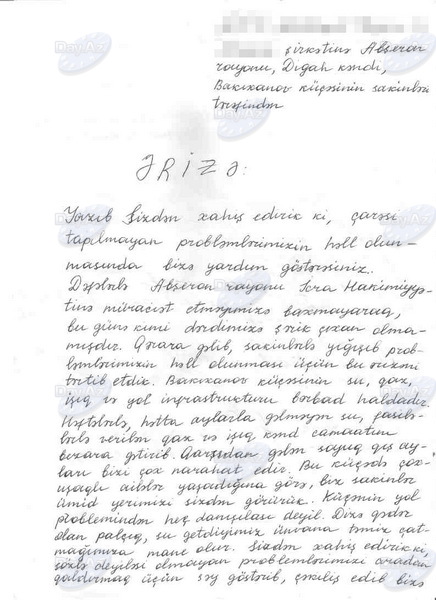 şirkətinə Abşeron
rayonu, Digah kəndi,
Bakıxanov küçəsinin sakinləri
tərəfindən
ƏRİZƏ:
Yazıb Sizdən xahiş edirik ki, çarəsi
tapılmayan problemlərimizin həll olun-
masında bizə yardım göstərəsiniz.
Dəfələrlə Abşeron rayonu İcra Hakimiyyə-
tinə müraciət etməyimizə baxmayaraq,
bu günə kimi dərdimizə şərik çıxan olma-
mışdır. Qərara gəlib, sakinlərlə yığışıb prob-
lemlərimizin həll olunması üçün bu ərizəni
tərtib etdik. Bakıxanov küçəsinin su, qaz,
işıq və yol infrastrukturu bərbad haldadır.
Həftələrlə, hətta aylarla gəlməyən su, fasilə-
lərlə verilən qaz və işıq kənd camaatını
bezara gətirib. Qarşıdan gələn soyuq qış ay-
ları bizi çox narahat edir. Bu küçədə çox-
uşaqlı ailələr yaşadığına görə, biz sakinlər
ümid yerimizi sizdən görürük. Küçənin yol
problemindən heç danışılası deyil. Dizə qədər
olan palçıq, su getdiyimiz ünvana təmiz çat-
mağımıza mane olur. Sizdən xahiş edirik ki,
sözlə deyiləsi olmayan problemlərimizi aradan
qaldırmaq üçün səy göstərib, çəkiliş edib bizə